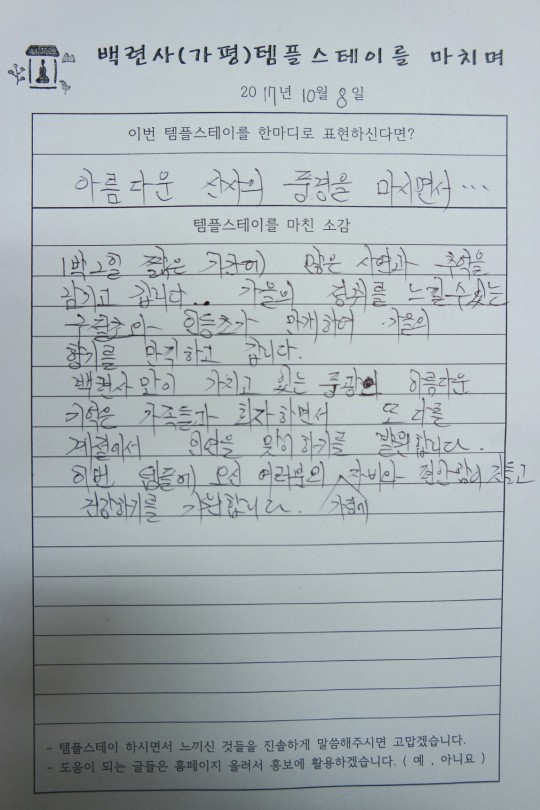 백련사(가평)템플스테이를 마치며
2017년 10월 8일
이번 템플스테이를 한마디로 표현하신다면?
아름다운 산사의 풍경을 마치면서...
템플스테이를 마친 소감
1박2일 짧은 기간에 많은 사연과 추억을
남기고 갑니다... 가을의 정취를 느낄수있는
구절초와 만개하여 가을의
향기를 만끽하고 갑니다.
백련사만이 가지고 있는 풍광의 아름다운
기억은 가족들과 회자하면서 또 다른
계절에서 인연을 맞이하기를 발원합니다.
이번 템플에 오신 여러분의 가정에 자비와 편안함이 깃들고
건강하기를 기원합니다.
- 템플스테이 하시면서 느끼신 것들을 진솔하게 말씀해주시면 고맙겠습니다.
- 도움이 되는 글들은 홈페이지 올려서 홍보에 활용하겠습니다. ( 예 , 아니요 )